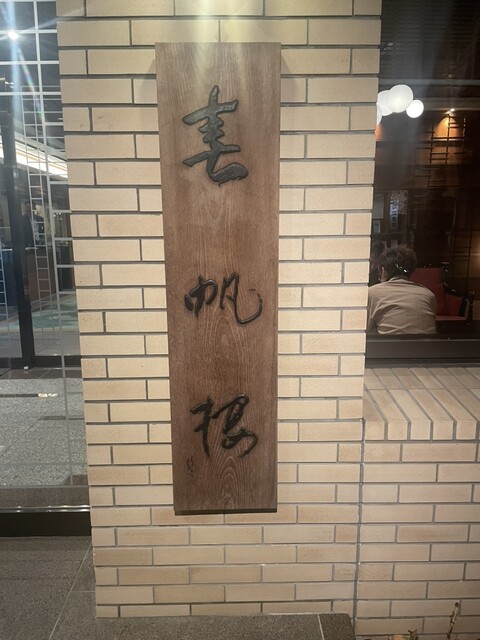 春帆楼